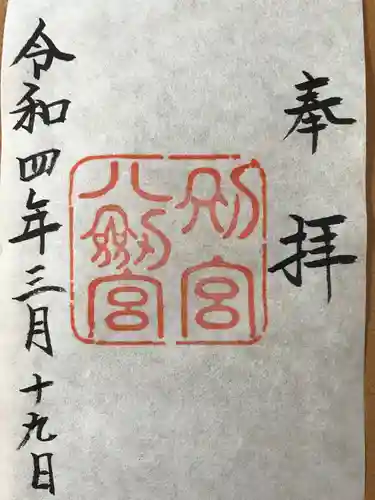 奉拝
別宮
八剱宮
令和四年三月十九日